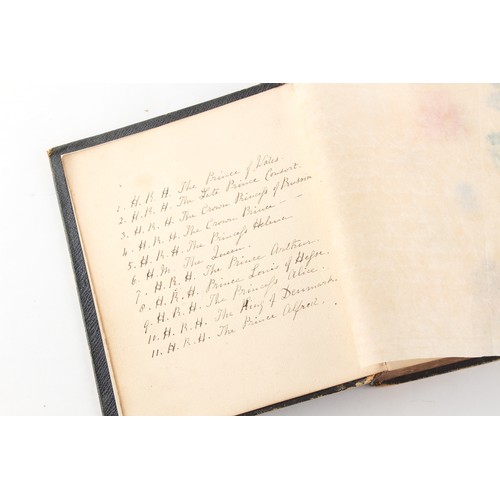 1. H. R. H. The Prince of Wales
2. H. R. H. The Late Prince Consort.
3. H. R. H. The Crown Princess of Prussia
4. H. R. H. The Crown Prince — —
5. H. R. H. The Princess Helena
6. H. M. The Queen.
7. H. R. H. The Prince Arthur.
8. H. R. H. Prince Louis of Hesse.
9. H. R. H. The Princess Alice.
10. H. R. H. The King of Denmark.
11. H. R. H. The Prince Alfred.